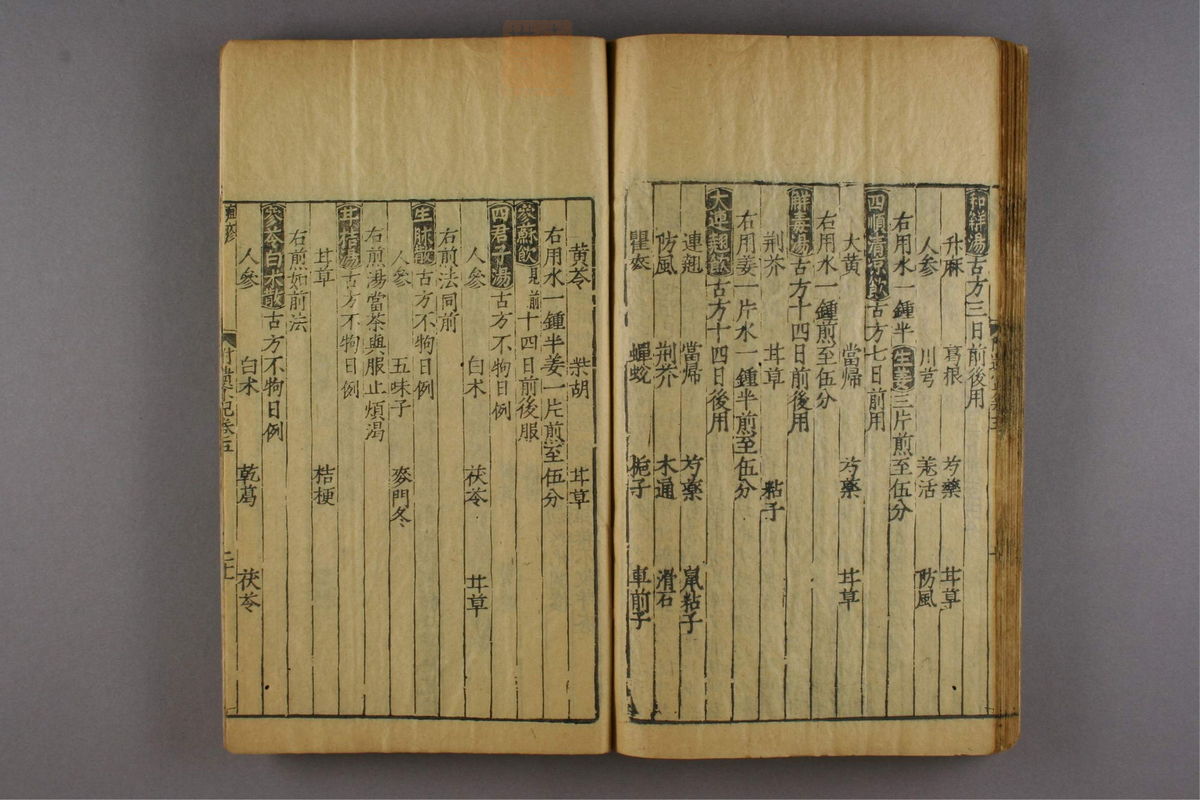 和解湯古方三日前後用
升麻 葛根 芍藥 甘草
人參 川芎 羌活 防風
右用水一鍾半生姜三片煎至伍分
四順清凉飲古方七日前用
大黃 當歸 芍藥 甘草
右用水一鍾煎至伍分
觧毒湯古方十四日前後用
荆芥 甘草 粘子
右用姜一片水一鍾半煎至伍分
大連翹飲古方十四日後用
連翹 當歸 芍藥 鼠粘子
防風 荆芥 木通 滑石
瞿麥 蟬蛻 梔子 車前子
黄芩 柴胡 甘草
右用水一鍾半姜一片煎至伍分
參蘇飲見前十四日前後服
四君子湯古方不拘日例
人參 白术 茯苓 甘草
右煎法同前
生脉散古方不拘日例
人參 五味子 麥門冬
右煎湯當茶與服止煩渴
甘桔湯古方不拘日例
甘草 桔梗
右煎如前法
參苓白术散古方不拘日例
人參 白术 乾葛 茯苓